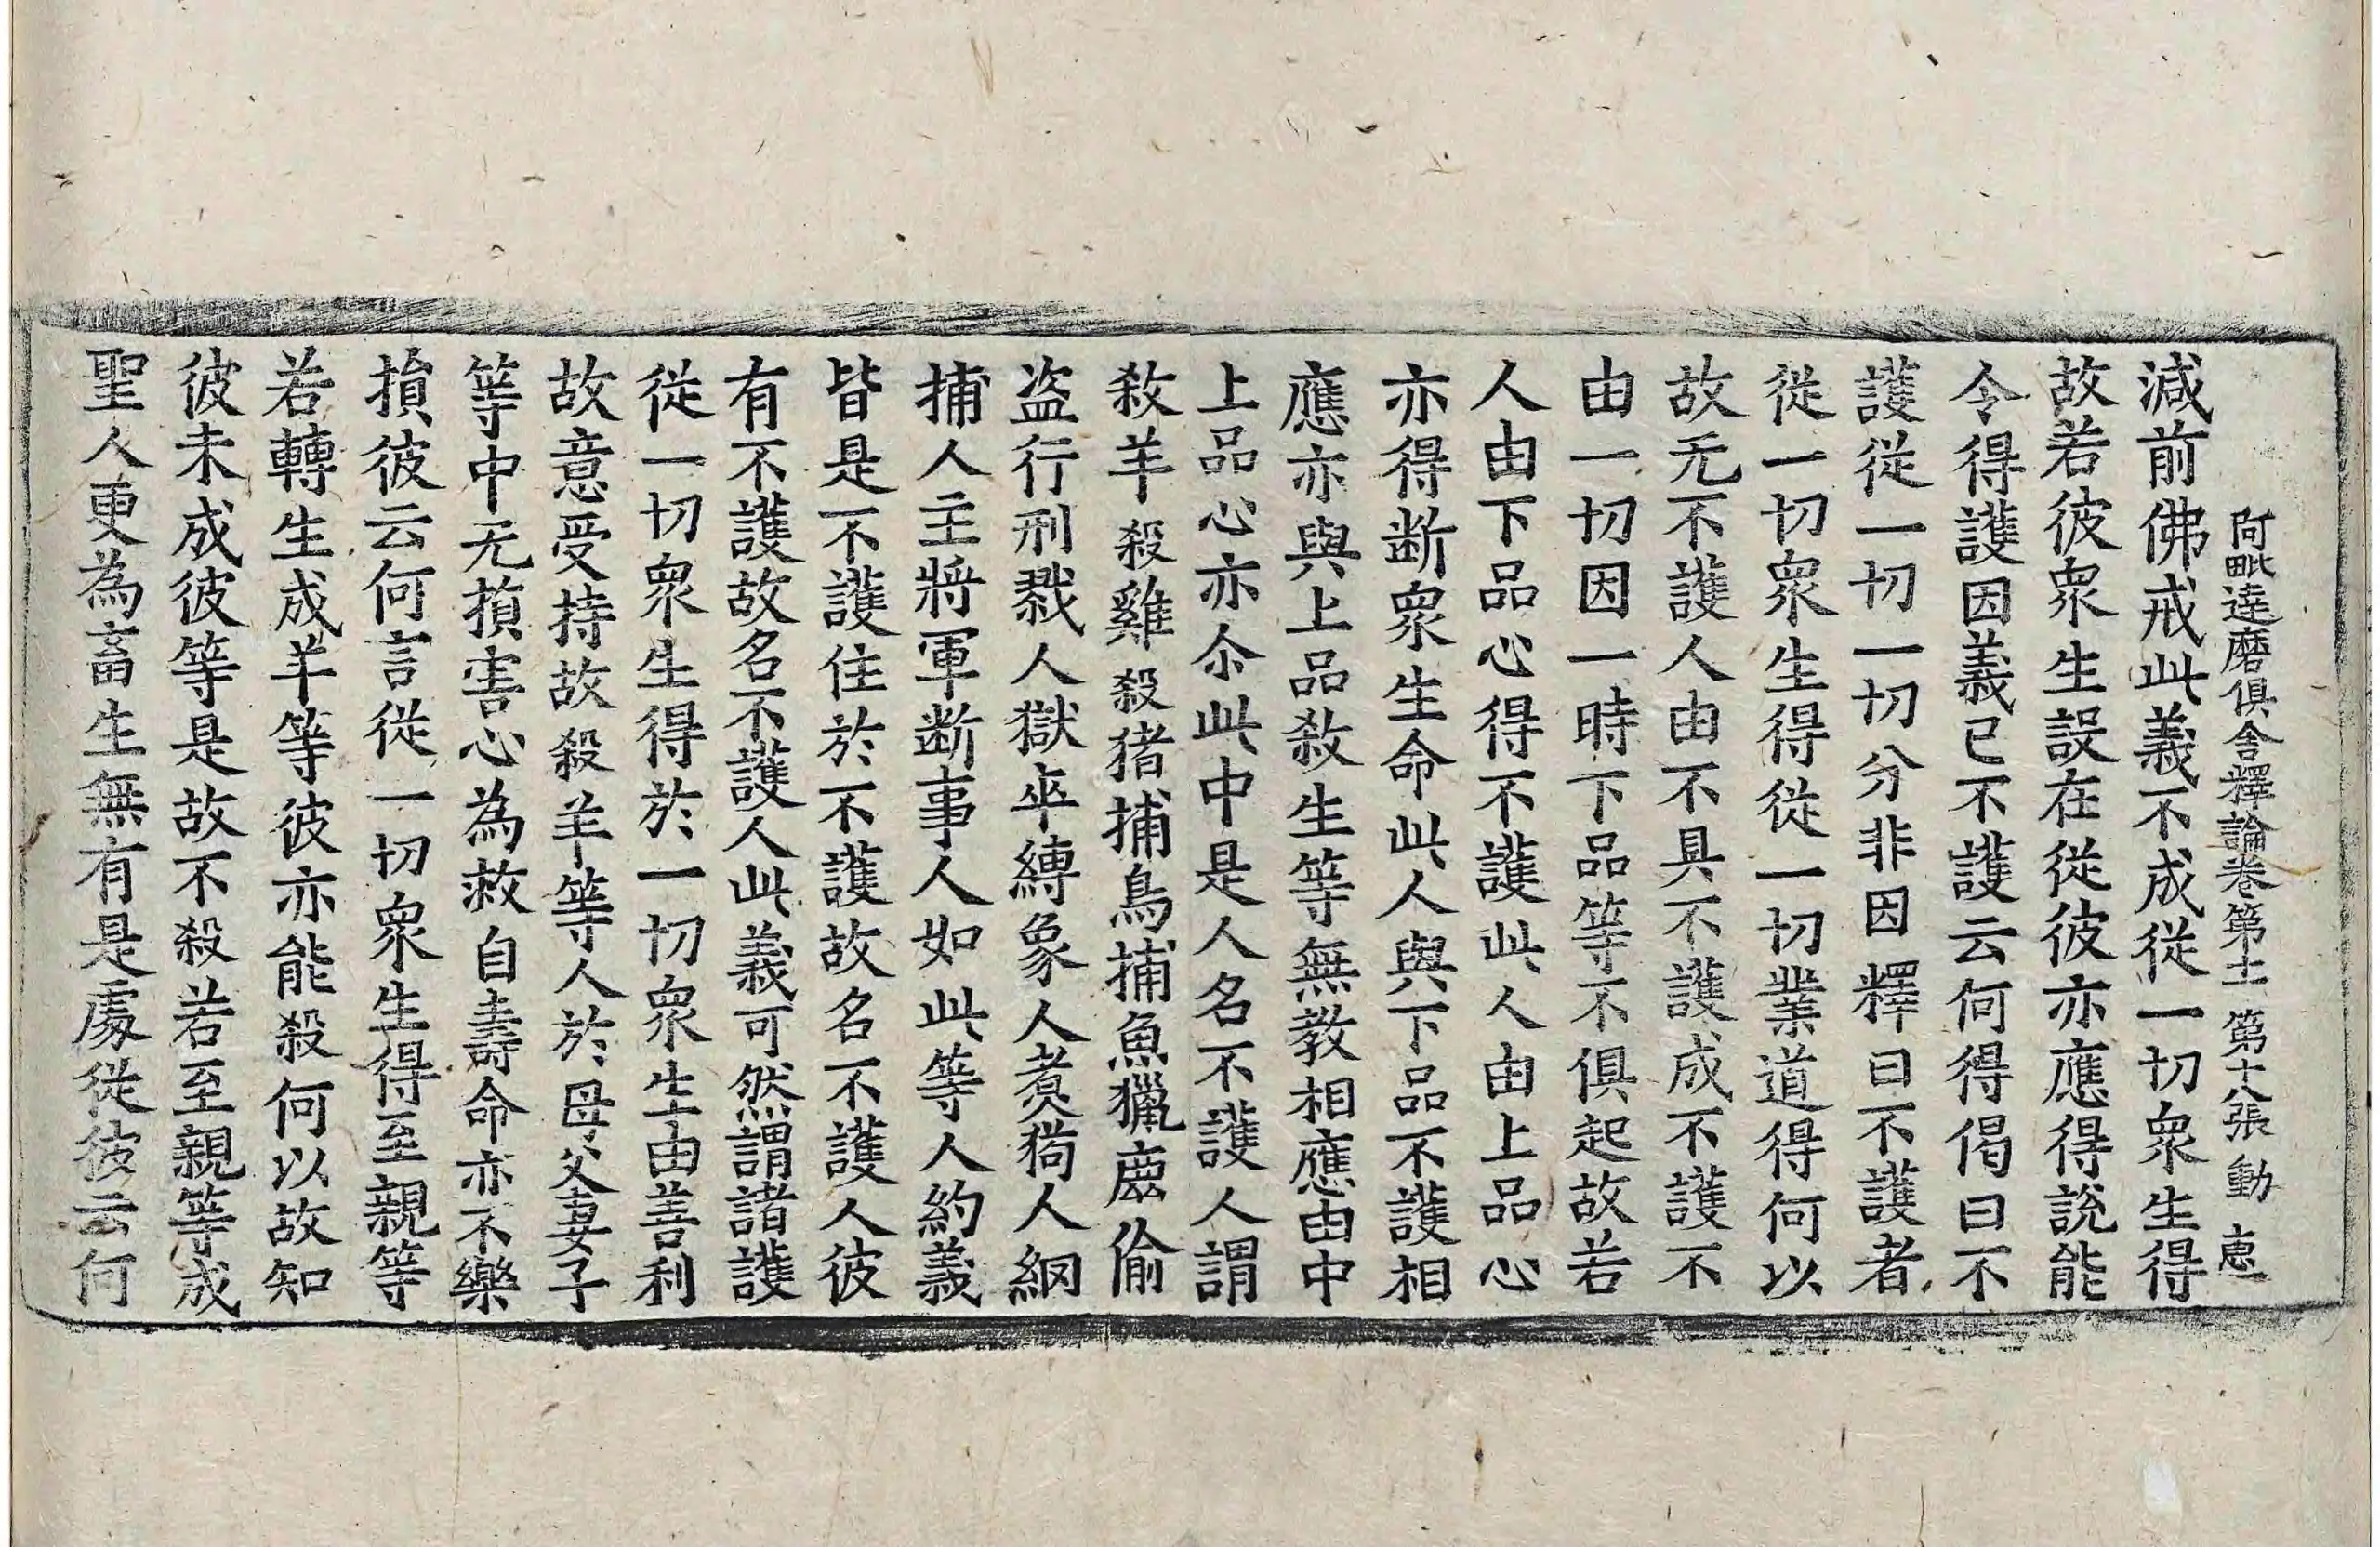 阿毗達磨俱舍釋論卷第十一 第十八張 動 惠一
減前佛戒此義不成從一切衆生得
故若彼衆生設在從彼亦應得說能
令得護因義已不護云何得偈曰不
護從一切一切分非因釋曰不護者
從一切衆生得從一切業道得何以
故无不護人由不具不護成不護不
由一切因一時下品等不俱起故若
人由下品心得不護此人由上品心
亦得断衆生命此人與下品不護相
應亦與上品殺生等無教相應由中
上品心亦尒此中是人名不護人謂
殺羊殺雞殺猪捕鳥捕魚獵鹿偷
盗行刑戮人獄卒縛象人煮狗人網
捕人主將軍断事人如此等人約義
皆是不護住於不護故名不護人彼
有不護故名不護人此義可然謂諸護
從一切衆生得於一切衆生由善利
故意受持故殺羊等人於母父妻子
等中无損害心為救自壽命亦不樂
損彼云何言從一切衆生得至親等
若轉生成羊等彼亦能殺何以故知
彼未成彼等是故不殺若至親等成
聖人更為畜生無有是處從彼云何